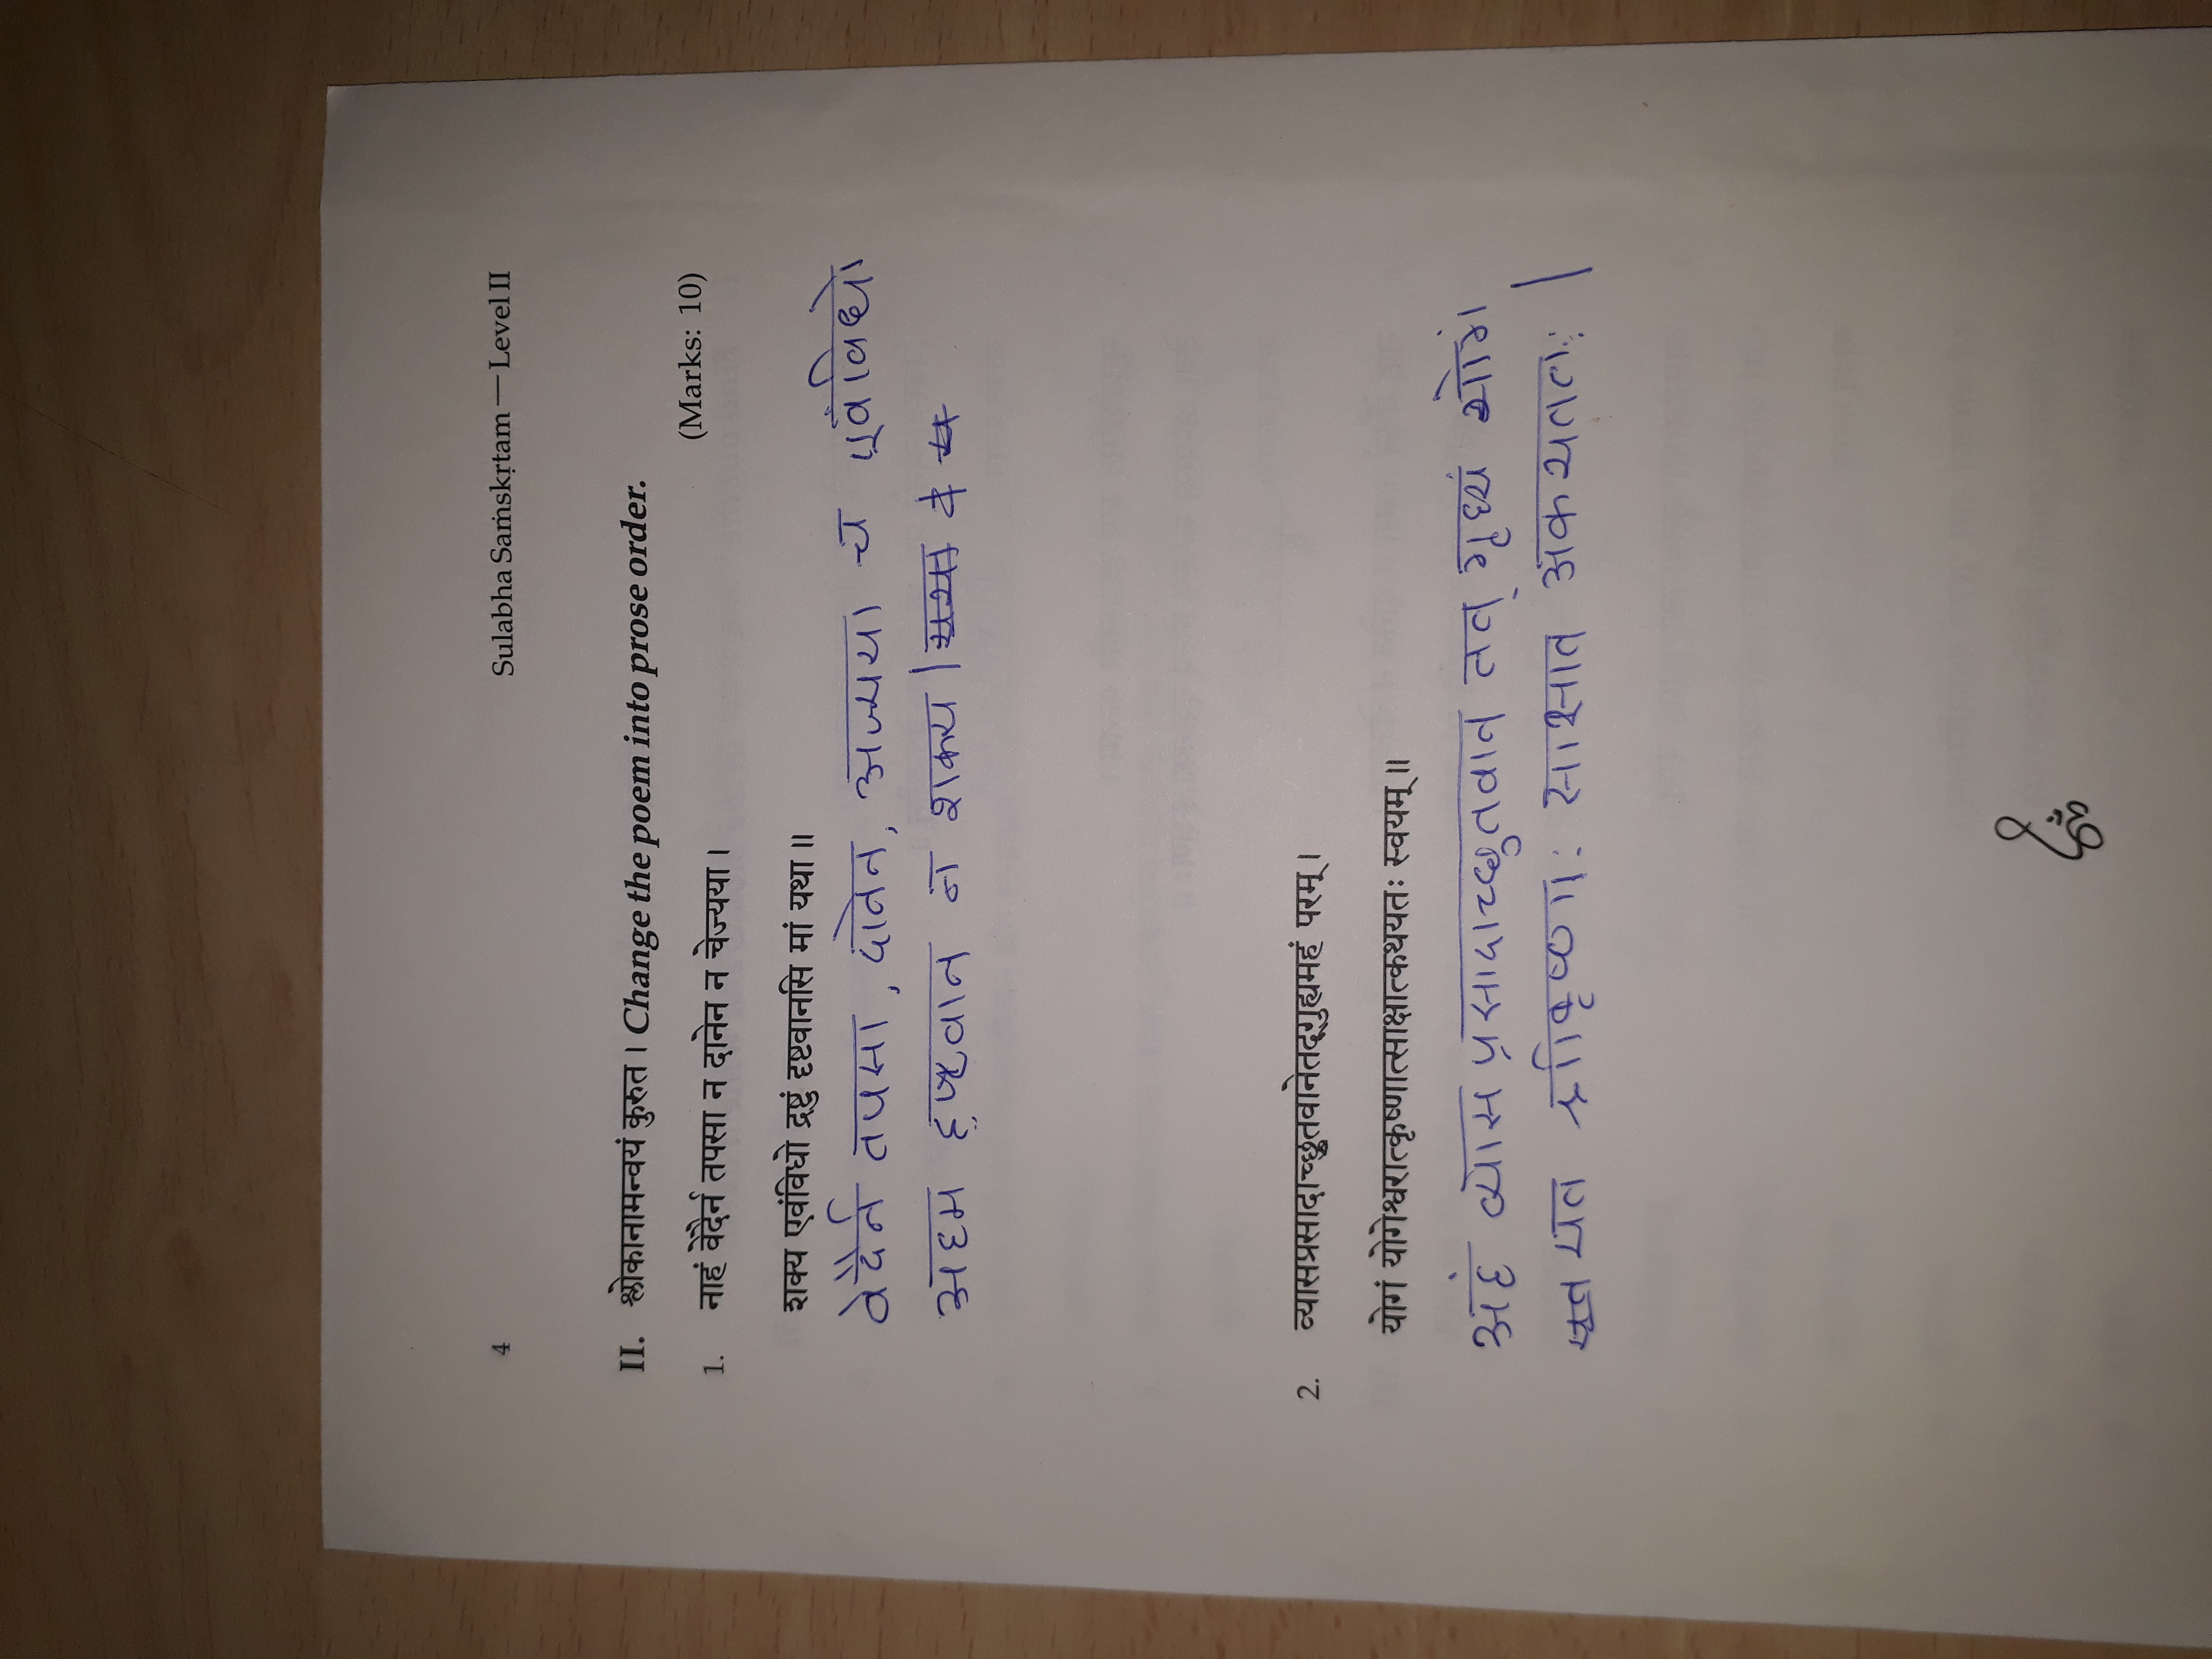 4
Sulabha Saṁskṛtam — Level II
II. श्लोकानामन्वयं कुरुत । Change the poem into prose order.
(Marks: 10)
1. नाहं वेदैर्न तपसा न दानेन न चेज्यया ।
शक्य एवंविधो द्रष्टुं दृष्टवानसि मां यथा ॥
वेदैर्न तपसा, दानेन, अज्यया च एवंविधो
अहम दृष्टवान न शक्य |
2. व्यासप्रसादाच्छ्रुतवानेतद्गुह्यमहं परम् ।
योगं योगेश्वरात्कृष्णात्साक्षात्कथयतः स्वयम् ॥
अहं व्यास प्रसादाच्छुतवान तत् गृध्यं योगं
यत श्रीकृष्णाः साक्षात अकथतत: |
ॐ